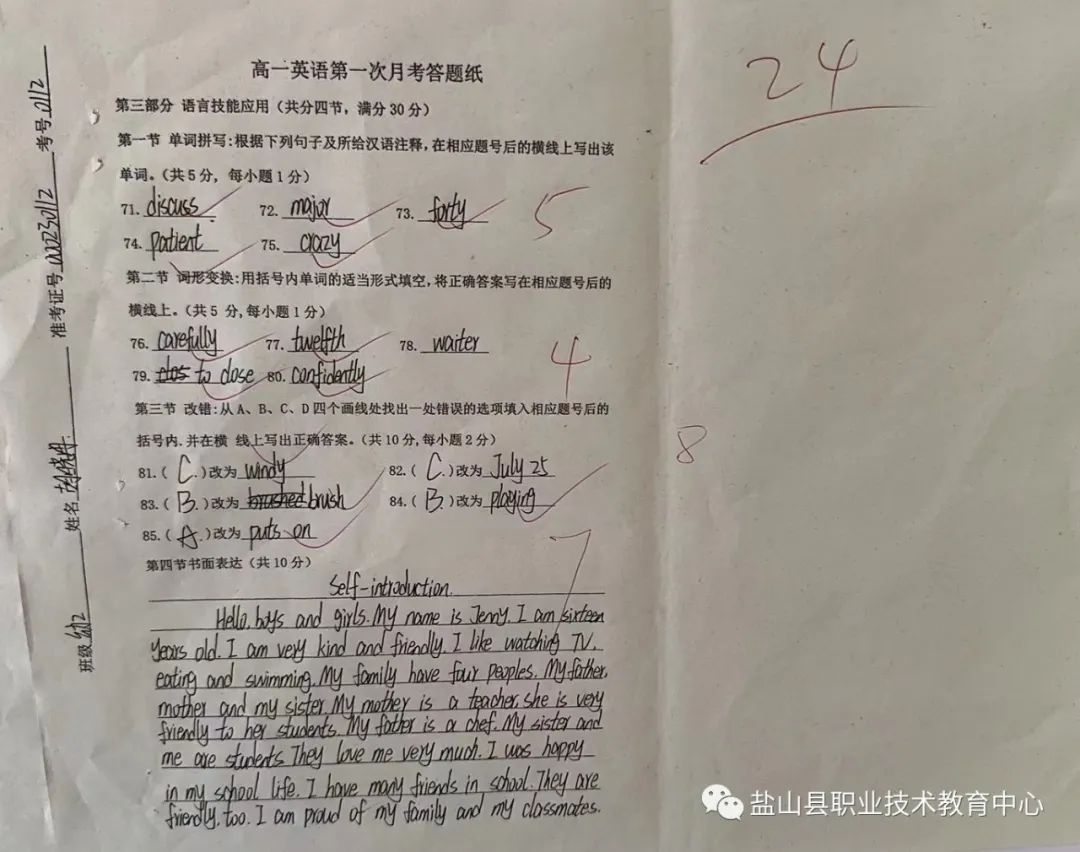 高一英语第一次月考答题纸
24
第三部分 语言技能应用（共分四节，满分30分）
第一节 单词拼写:根据下列句子及所给汉语注释,在相应题号后的横线上写出该
单词。(共5分, 每小题1分)
71. discuss 72. major 73. forty
5
74. patient 75. crazy
第二节 词形变换:用括号内单词的适当形式填空,将正确答案写在相应题号后的
横线上。(共5 分,每小题1分)
76. carefully 77. twelfth 78. waiter
4
79. to close 80. confidently
第三节 改错:从A、B、C、D四个画线处找出一处错误的选项填入相应题号后的
括号内.并在横 线上写出正确答案。(共10分,每小题2分)
8
81. ( C. )改为 windy 82. ( C. )改为 July 25
83. ( B. )改为 brushed brush 84. ( B. )改为 playing
85. ( A. )改为 puts on
7
第四节书面表达（共10分）
Self-introduction.
Hello. boys and girls. My name is Jenny. I am sixteen
years old. I am very kind and friendly. I like watching TV.
eating and swimming. My family have four peoples. My father,
mother and my sister. My mother is a teacher. she is very
friendly to her students. My father is a chef. My sister and
me are students. They love me very much. I was happy
in my school life. I have many friends in school. They are
friendly. too. I am proud of my family and my classmates.
班级 姓名 准考证号 00230112 考号 0112
盐山县职业技术教育中心